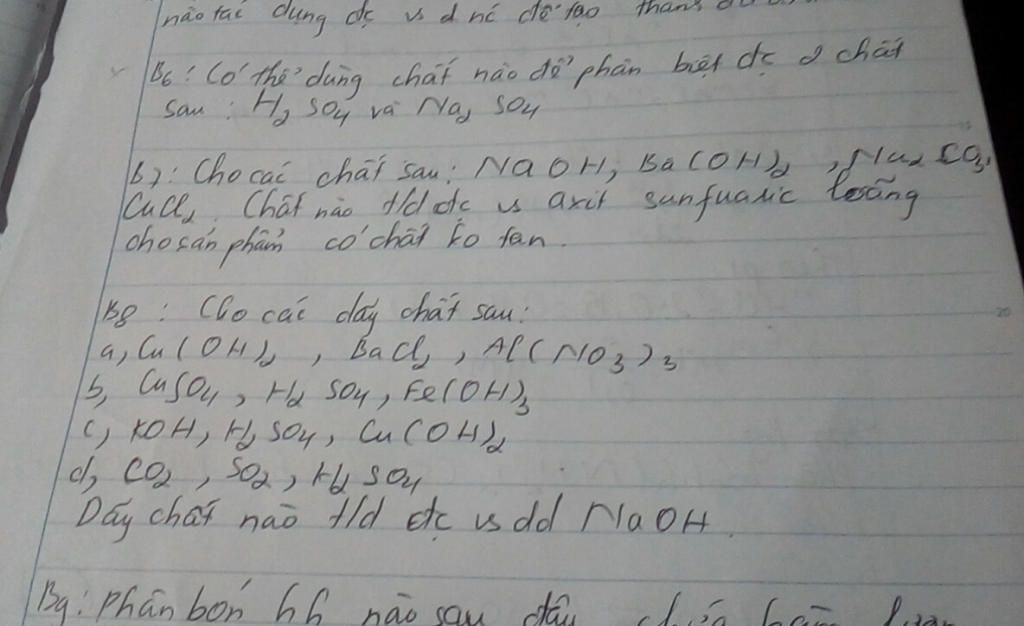 nào tác dụng đc vs d nc để tạo thành
B6: Có thể dùng chất nào để phân biệt đc 2 chất
sau: H2 SO4 và Na2 SO4
B7: Cho các chất sau: NaOH, Ba(OH)2, Na2 CO3,
CuCl2. Chất nào t/d đc vs axit sunfuaric loãng
cho sản phẩm có chất ko tan.
B8: Cho các dãy chất sau:
a, Cu(OH)2, BaCl2, Al(NO3)3
b, CuSO4, H2 SO4, Fe(OH)3
c, KOH, H2 SO4, Cu(OH)2
d, CO2, SO2, H2 SO4
Dãy chất nào t/d đc vs dd NaOH.
B9: Phân bón hh nào sau đây chứa hàm lượng